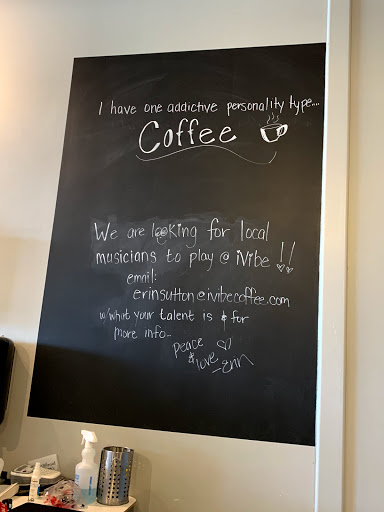 I have one addictive personality type...
Coffee
We are looking for local
musicians to play @ iVibe !!
email:
erinsutton@ivibecoffee.com
w/ what your talent is & for
more info...
peace
& love
-erin